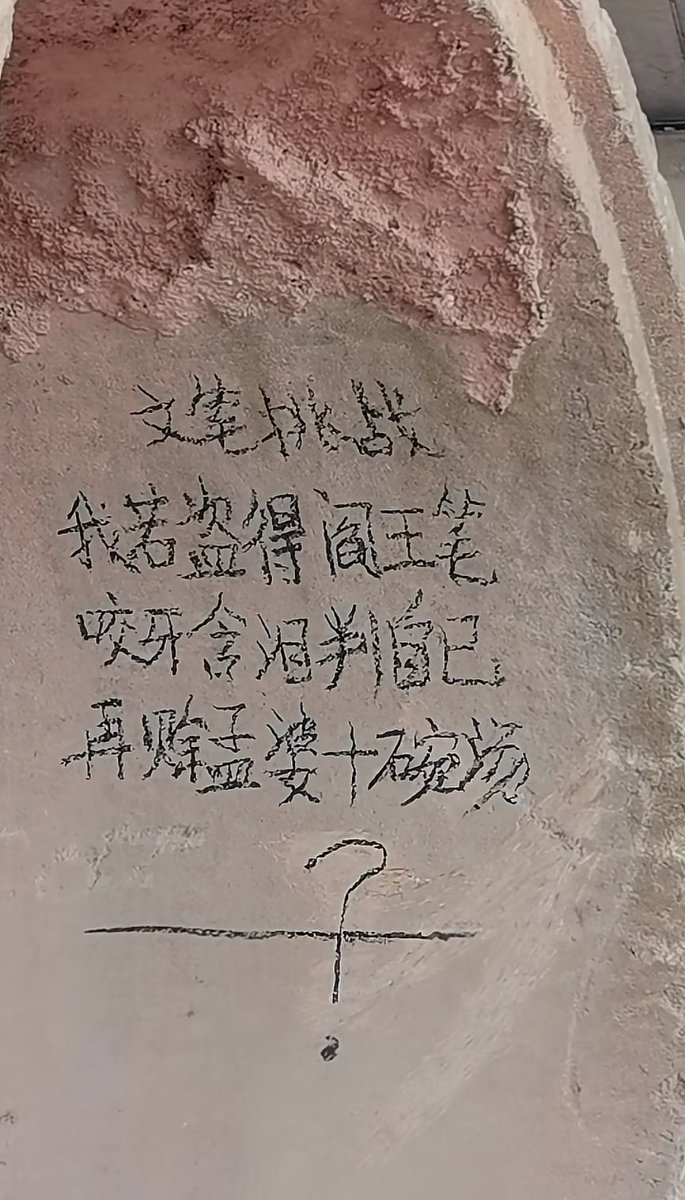 文笔挑战
我若盗得阎王笔
咬牙含泪判自己
再赊孟婆十碗汤
?